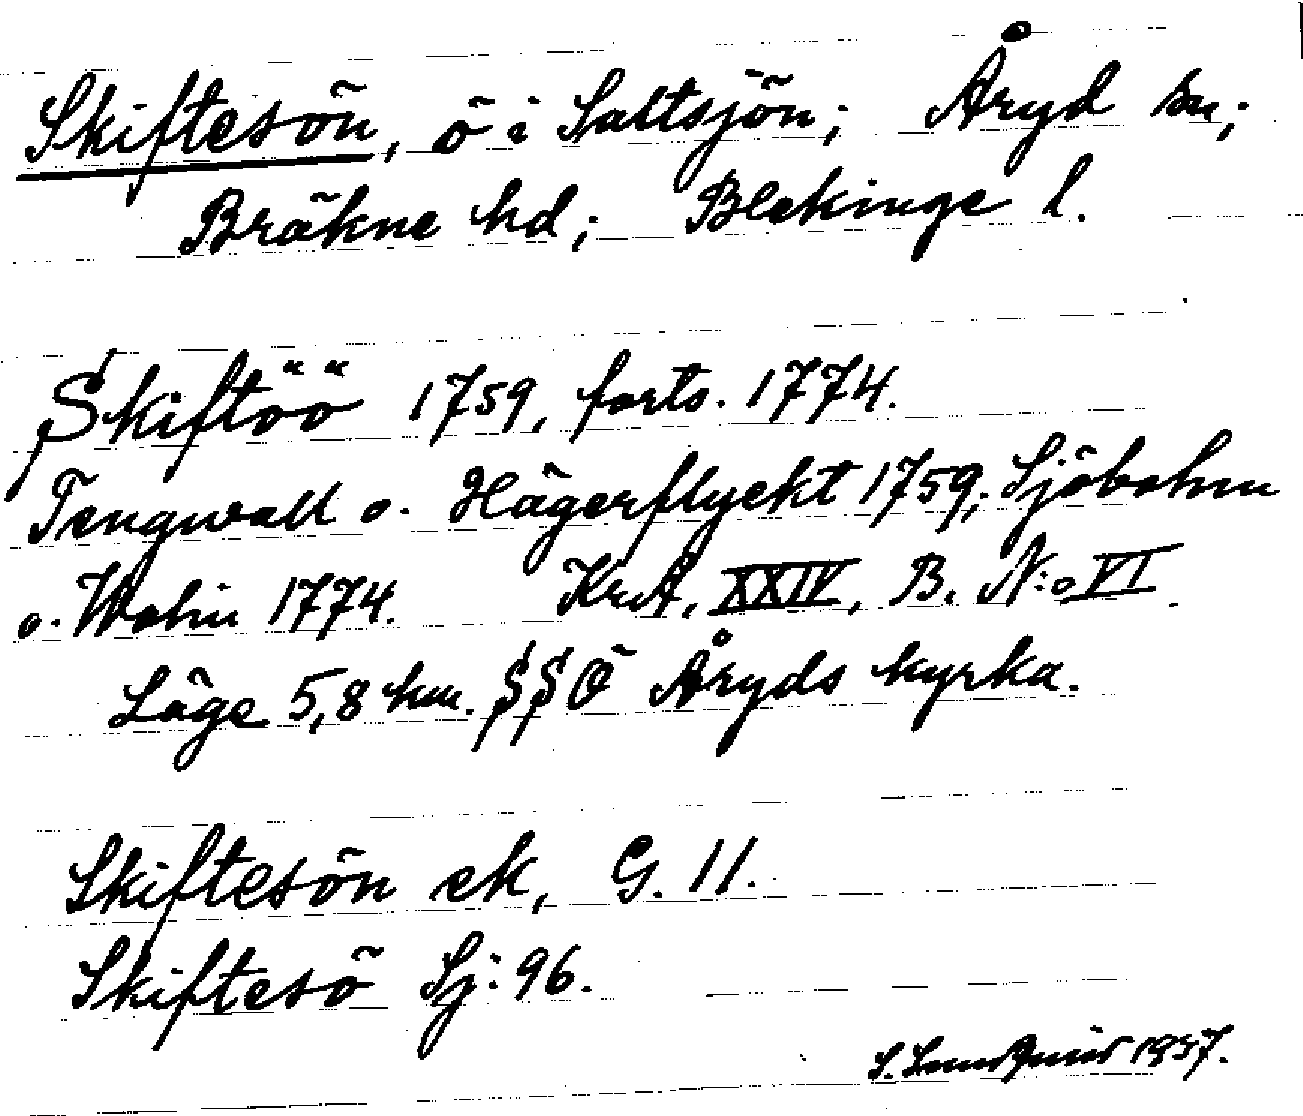 Skiftesön, ö i Saltsjön; Åryd sn;
Bräkne hd; Blekinge l.
Skiftöö 1759, forts. 1774.
Tengwall o. Hägerflyckt 1759; Sjöbohm
o. Wohin 1774. KrA, XXIV, B. N:o VI
Läge 5,8 km. SSÖ Åryds kyrka.
Skiftesön ek, G. 11.
Skiftesö Sj: 96.
S. Lundquist 1937.